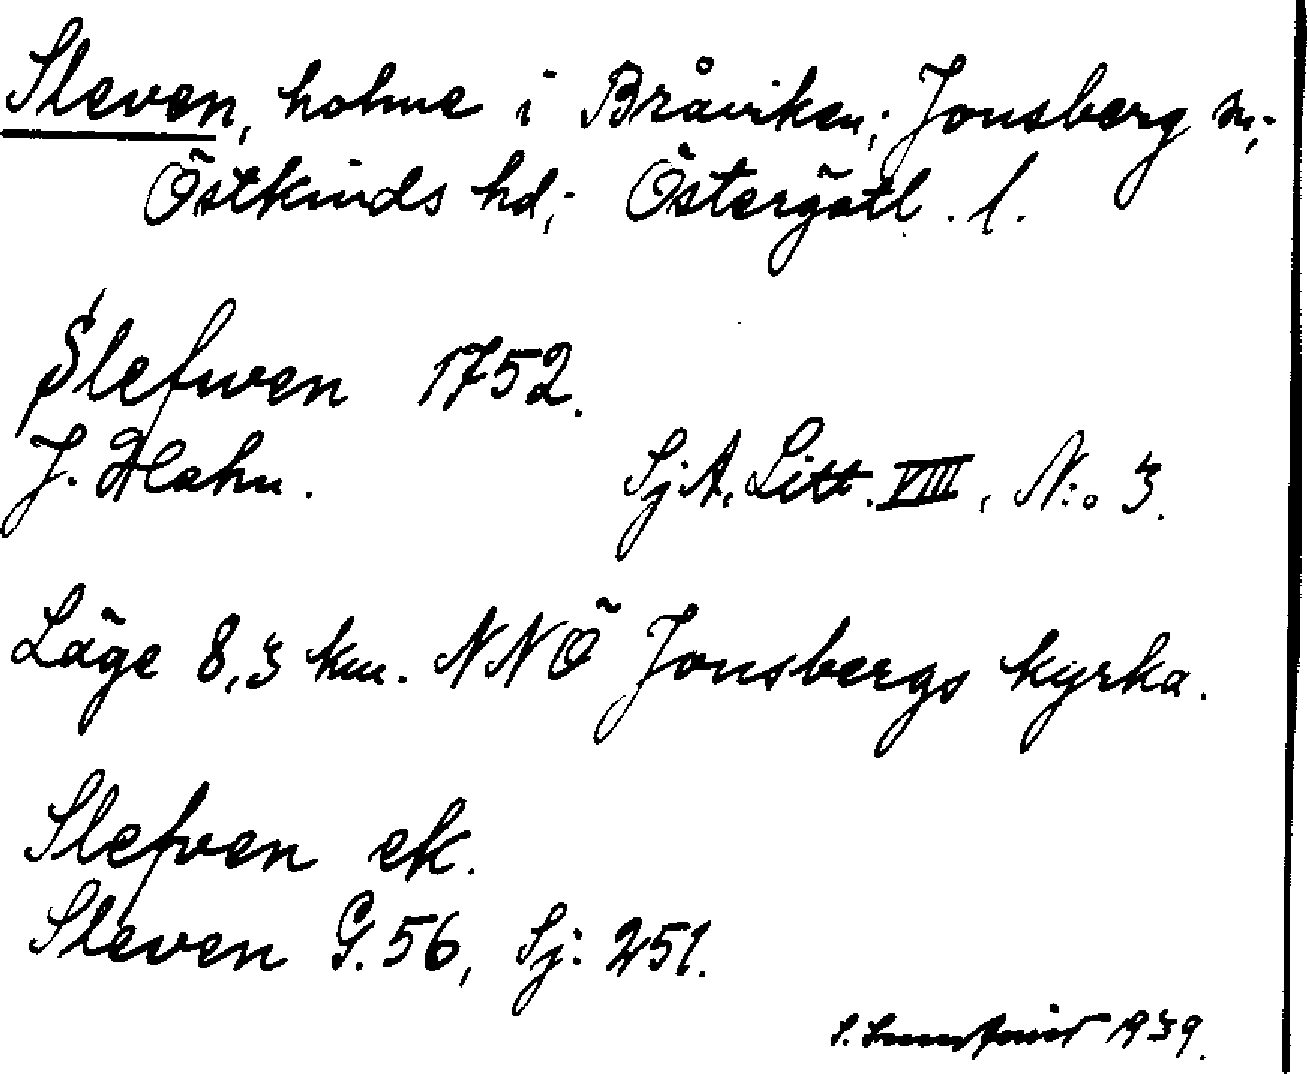 Sleven, holme i Bråviken; Jonsberg sn;
Östkinds hd; Östergötl. l.
Slefwen 1752.
J. Hahn. SjA. Litt. VIII, N:o 3.
Läge 8,3 km. NNÖ Jonsbergs kyrka.
Slefven ek.
Sleven G.56, Sj: 251.
1939.